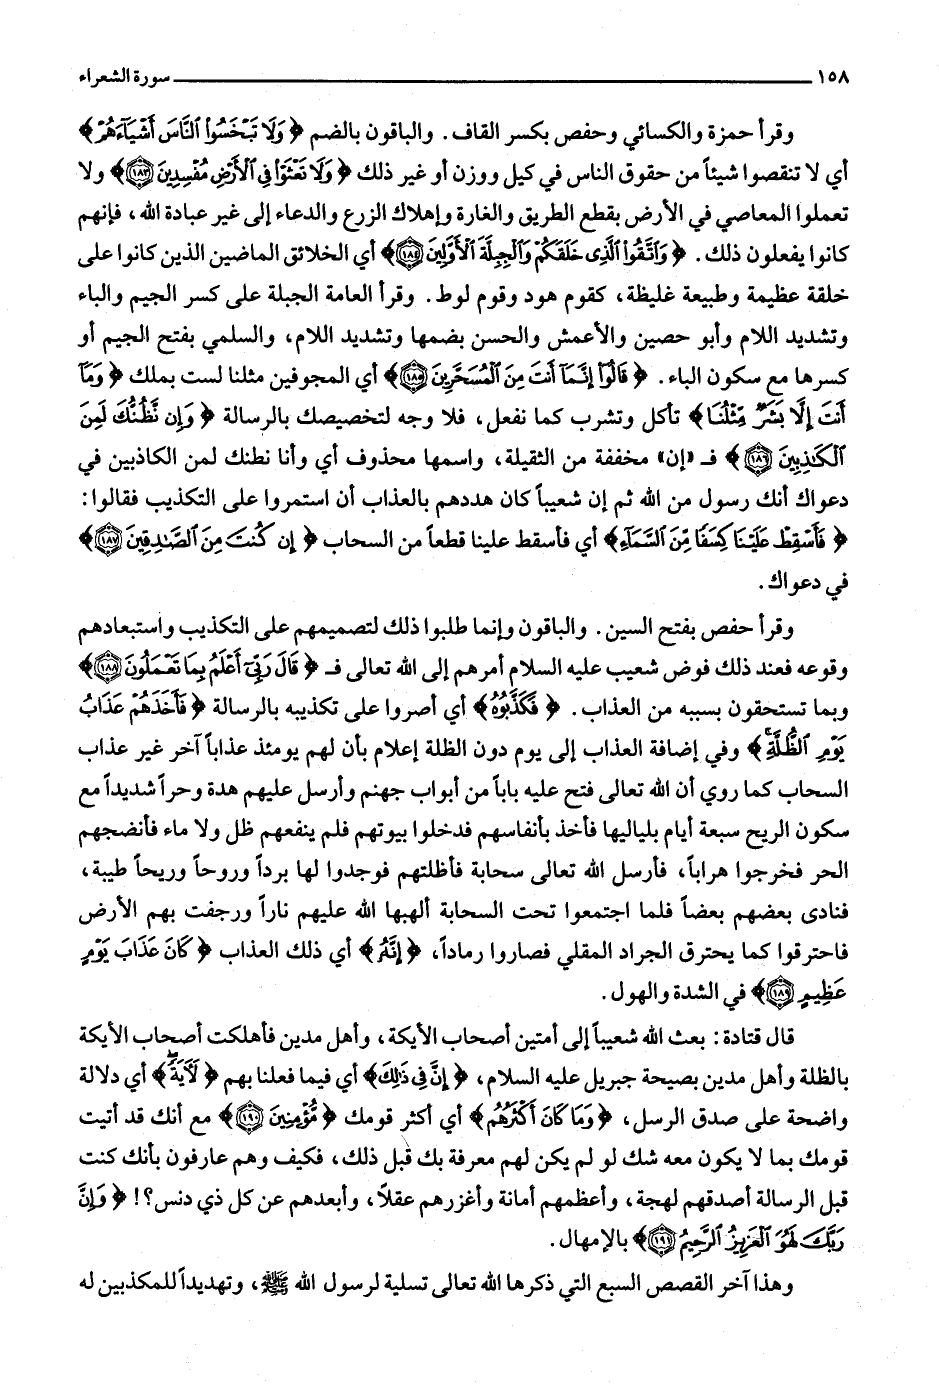 ١٥٨ سورة الشعراء
وقرأ حمزة والكسائي وحفص بكسر القاف. والباقون بالضم ﴿وَلَا تَبْخَسُوا۟ ٱلنَّاسَ أَشْيَآءَهُمْ﴾
أي لا تنقصوا شيئاً من حقوق الناس في كيل ووزن أو غير ذلك ﴿وَلَا تَعْثَوْا۟ فِى ٱلْأَرْضِ مُفْسِدِينَ ١٨٣﴾ ولا
تعملوا المعاصي في الأرض بقطع الطريق والغارة وإهلاك الزرع والدعاء إلى غير عبادة الله، فإنهم
كانوا يفعلون ذلك. ﴿وَٱتَّقُوا۟ ٱلَّذِى خَلَقَكُمْ وَٱلْجِبِلَّةَ ٱلْأَوَّلِينَ ١٨٤﴾ أي الخلائق الماضين الذين كانوا على
خلقة عظيمة وطبيعة غليظة، كقوم هود وقوم لوط. وقرأ العامة الجبلة على كسر الجيم والباء
وتشديد اللام وأبو حصين والأعمش والحسن بضمها وتشديد اللام، والسلمي بفتح الجيم أو
كسرها مع سكون الباء. ﴿قَالُوٓا۟ إِنَّمَآ أَنتَ مِنَ ٱلْمُسَحَّرِينَ ١٨٥﴾ أي المجوفين مثلنا لست بملك ﴿وَمَآ
أَنتَ إِلَّا بَشَرٌ مِّثْلُنَا﴾ تأكل وتشرب كما نفعل، فلا وجه لتخصيصك بالرسالة ﴿وَإِن نَّظُنُّكَ لَمِنَ
ٱلْكَٰذِبِينَ ١٨٦﴾ فـ «إن» مخففة من الثقيلة، واسمها محذوف أي وأنا نظنك لمن الكاذبين في
دعواك أنك رسول من الله ثم إن شعيباً كان هددهم بالعذاب أن استمروا على التكذيب فقالوا:
﴿فَأَسْقِطْ عَلَيْنَا كِسَفًا مِّنَ ٱلسَّمَآءِ﴾ أي فأسقط علينا قطعاً من السحاب ﴿إِن كُنتَ مِنَ ٱلصَّٰدِقِينَ ١٨٧﴾
في دعواك.
وقرأ حفص بفتح السين. والباقون وإنما طلبوا ذلك لتصميمهم على التكذيب واستبعادهم
وقوعه فعند ذلك فوض شعيب عليه السلام أمرهم إلى الله تعالى فـ ﴿قَالَ رَبِّىٓ أَعْلَمُ بِمَا تَعْمَلُونَ ١٨٨﴾
وبما تستحقون بسببه من العذاب. ﴿فَكَذَّبُوهُ﴾ أي أصروا على تكذيبه بالرسالة ﴿فَأَخَذَهُمْ عَذَابُ
يَوْمِ ٱلظُّلَّةِ﴾ وفي إضافة العذاب إلى يوم دون الظلة إعلام بأن لهم يومئذ عذاباً آخر غير عذاب
السحاب كما روي أن الله تعالى فتح عليه باباً من أبواب جهنم وأرسل عليهم هدة وحراً شديداً مع
سكون الريح سبعة أيام بلياليها فأخذ بأنفاسهم فدخلوا بيوتهم فلم ينفعهم ظل ولا ماء فأنضجهم
الحر فخرجوا هراباً، فأرسل الله تعالى سحابة فأظلتهم فوجدوا لها برداً وروحاً وريحاً طيبة،
فنادى بعضهم بعضاً فلما اجتمعوا تحت السحابة ألهبها الله عليهم ناراً ورجفت بهم الأرض
فاحترقوا كما يحترق الجراد المقلي فصاروا رماداً، ﴿إِنَّهُۥ﴾ أي ذلك العذاب ﴿كَانَ عَذَابَ يَوْمٍ
عَظِيمٍ ١٨٩﴾ في الشدة والهول.
قال قتادة: بعث الله شعيباً إلى أمتين أصحاب الأيكة، وأهل مدين فأهلكت أصحاب الأيكة
بالظلة وأهل مدين بصيحة جبريل عليه السلام، ﴿إِنَّ فِى ذَٰلِكَ﴾ أي فيما فعلنا بهم ﴿لَـَٔايَةً﴾ أي دلالة
واضحة على صدق الرسل، ﴿وَمَا كَانَ أَكْثَرُهُم﴾ أي أكثر قومك ﴿مُّؤْمِنِينَ ١٩٠﴾ مع أنك قد أتيت
قومك بما لا يكون معه شك لو لم يكن لهم معرفة بك قبل ذلك، فكيف وهم عارفون بأنك كنت
قبل الرسالة أصدقهم لهجة، وأعظمهم أمانة وأغزرهم عقلاً، وأبعدهم عن كل ذي دنس؟! ﴿وَإِنَّ
رَبَّكَ لَهُوَ ٱلْعَزِيزُ ٱلرَّحِيمُ ١٩١﴾ بالإمهال.
وهذا آخر القصص السبع التي ذكرها الله تعالى تسلية لرسول الله ﷺ، وتهديداً للمكذبين له